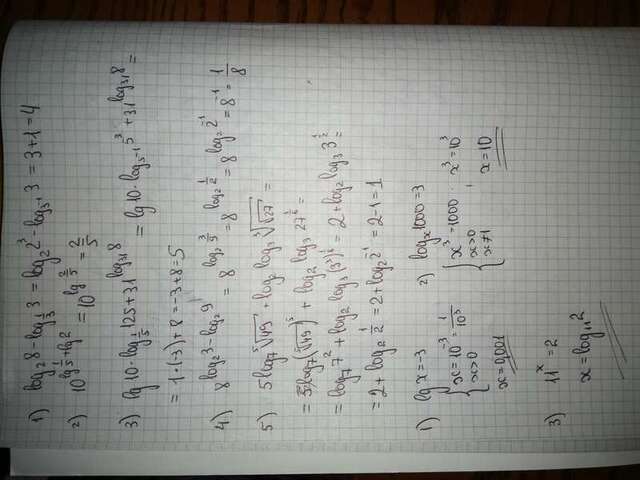 1) log₂8 - log_{1/3}3 = log₂2³ - log_{3⁻¹}3 = 3+1 = 4
2) 10^{lg 1/5 + lg2} = 10^{lg 2/5} = 2/5
3) lg10 · log_{1/5}125 + 31^{log₃₁8} = lg10 · log_{5⁻¹}5³ + 31^{log₃₁8} =
= 1·(-3) + 8 = -3+8 = 5
4) 8^{log₂3 - log₂9} = 8^{log₂ 3/9} = 8^{log₂ 1/2} = 8^{log₂2⁻¹} = 8⁻¹ = 1/8
5) 5log₇⁵√49 + log₂log₃³√√27 =
= log₇(⁵√49)⁵ + log₂log₃27^{1/6} =
= log₇7² + log₂log₃(3³)^{1/6} = 2 + log₂log₃3^{1/2} =
= 2 + log₂ 1/2 = 2 + log₂2⁻¹ = 2-1 = 1
1) lg x = -3 2) logₓ1000 = 3
{ x = 10⁻³ = 1/10³ { x³ = 1000 x³ = 10³
x > 0 x > 0
x = 0,001 x ≠ 1 x = 10
3) 11ˣ = 2
x = log₁₁2